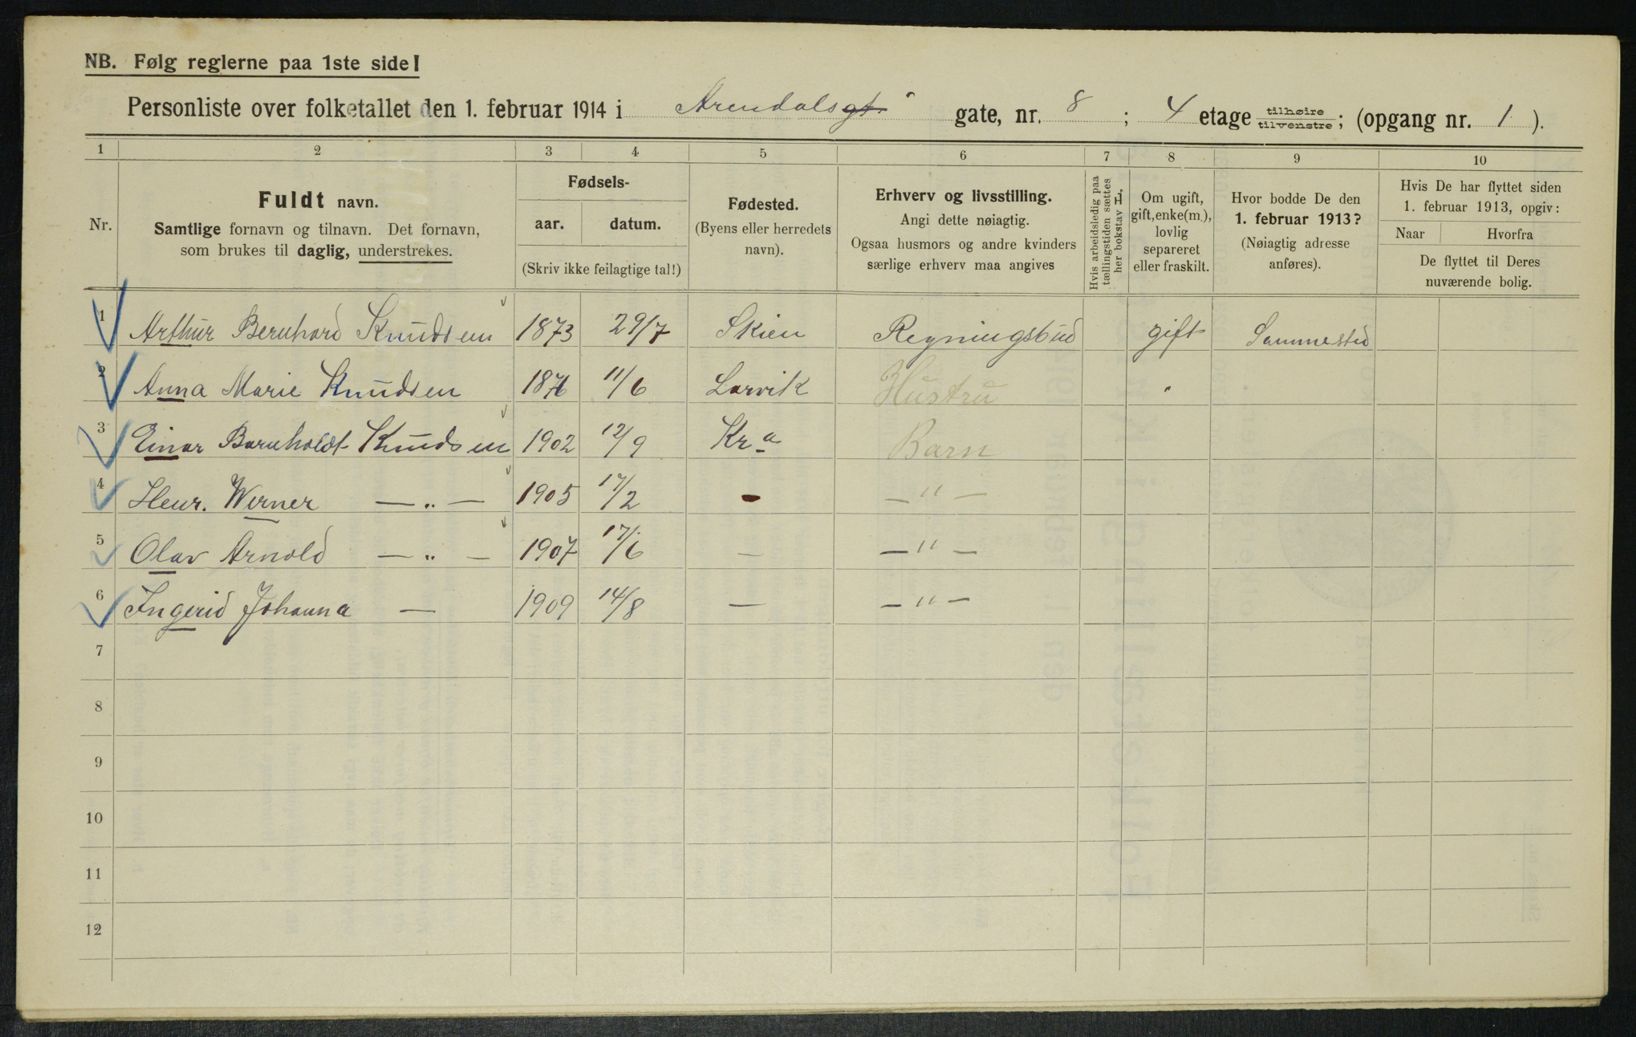 NB. Følg reglerne paa 1ste side!
Personliste over folketallet den 1. februar 1914 i Arendalsgt. gate, nr. 8 ; 4 etage tilhøire tilvenstre ; (opgang nr. 1 ).
1 2 3 4 5 6 7 8 9 10
Nr.
Fuldt navn.
Samtlige fornavn og tilnavn. Det fornavn,
som brukes til daglig, understrekes.
Fødsels-
aar. datum.
(Skriv ikke feilagtige tal!)
Fødested.
(Byens eller herredets
navn).
Erhverv og livsstilling.
Angi dette nøiagtig.
Ogsaa husmors og andre kvinders
særlige erhverv maa angives
Hvis arbeidsledig paa
tællingstiden sættes
her bokstav L.
Om ugift,
gift, enke(m.),
lovlig
separeret
eller fraskilt.
Hvor bodde De den
1. februar 1913?
(Nøiagtig adresse
anføres).
Hvis De har flyttet siden
1. februar 1913, opgiv:
Naar Hvorfra
De flyttet til Deres
nuværende bolig.
1 Arthur Bernhard Knudsen 1873 29/7 Skien Regningsbud gift Sammested
2 Anna Marie Knudsen 1876 11/6 Larvik Hustru "
3 Einar Barnholdt Knudsen 1902 12/9 Kra Barn
4 Henr. Werner — " — 1905 17/2 - — " —
5 Olav Arnold — " — 1907 17/6 — — " —
6 Ingerid Johanna — 1909 14/8 — — " —
7
8
9
10
11
12